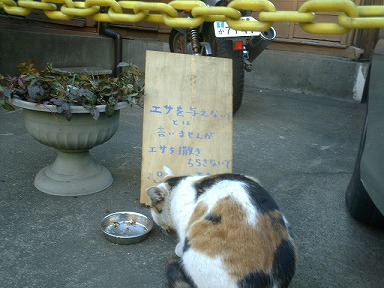 エサを与えないで
とは
言いませんが
エサを散き
ちらさないで